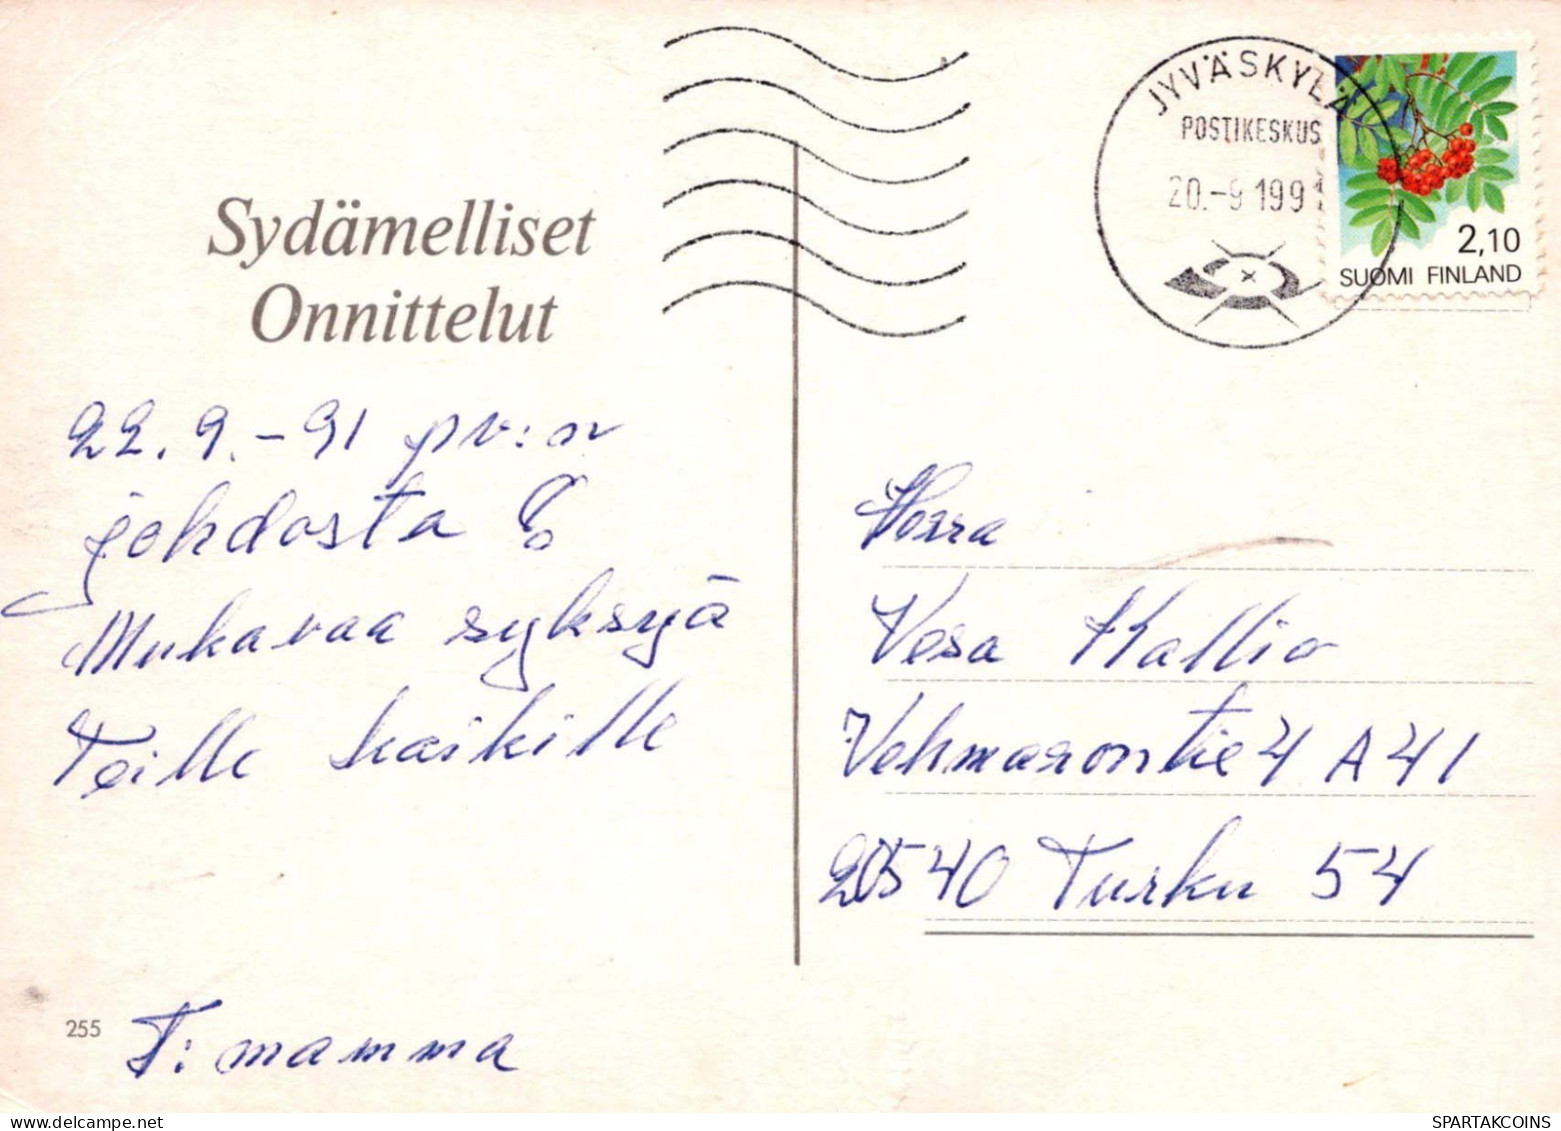 JYVÄSKYLÄ
POSTIKESKUS
20.-9 1991
2,10
SUOMI FINLAND
Sydämelliset
Onnittelut
22.9.-91 pv:n
johdosta !
Mukavaa syksyä
Teille kaikille
T: mamma
255
Herra
Vesa Kallio
Vehmasrontie 4 A 41
20540 Turku 54
SPARTAKCOINS